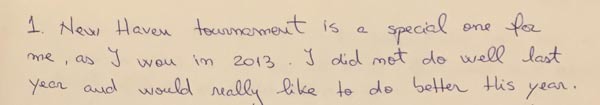 1. New Haven tournament is a special one for
me, as I won in 2013. I did not do well last
year and would really like to do better this year.